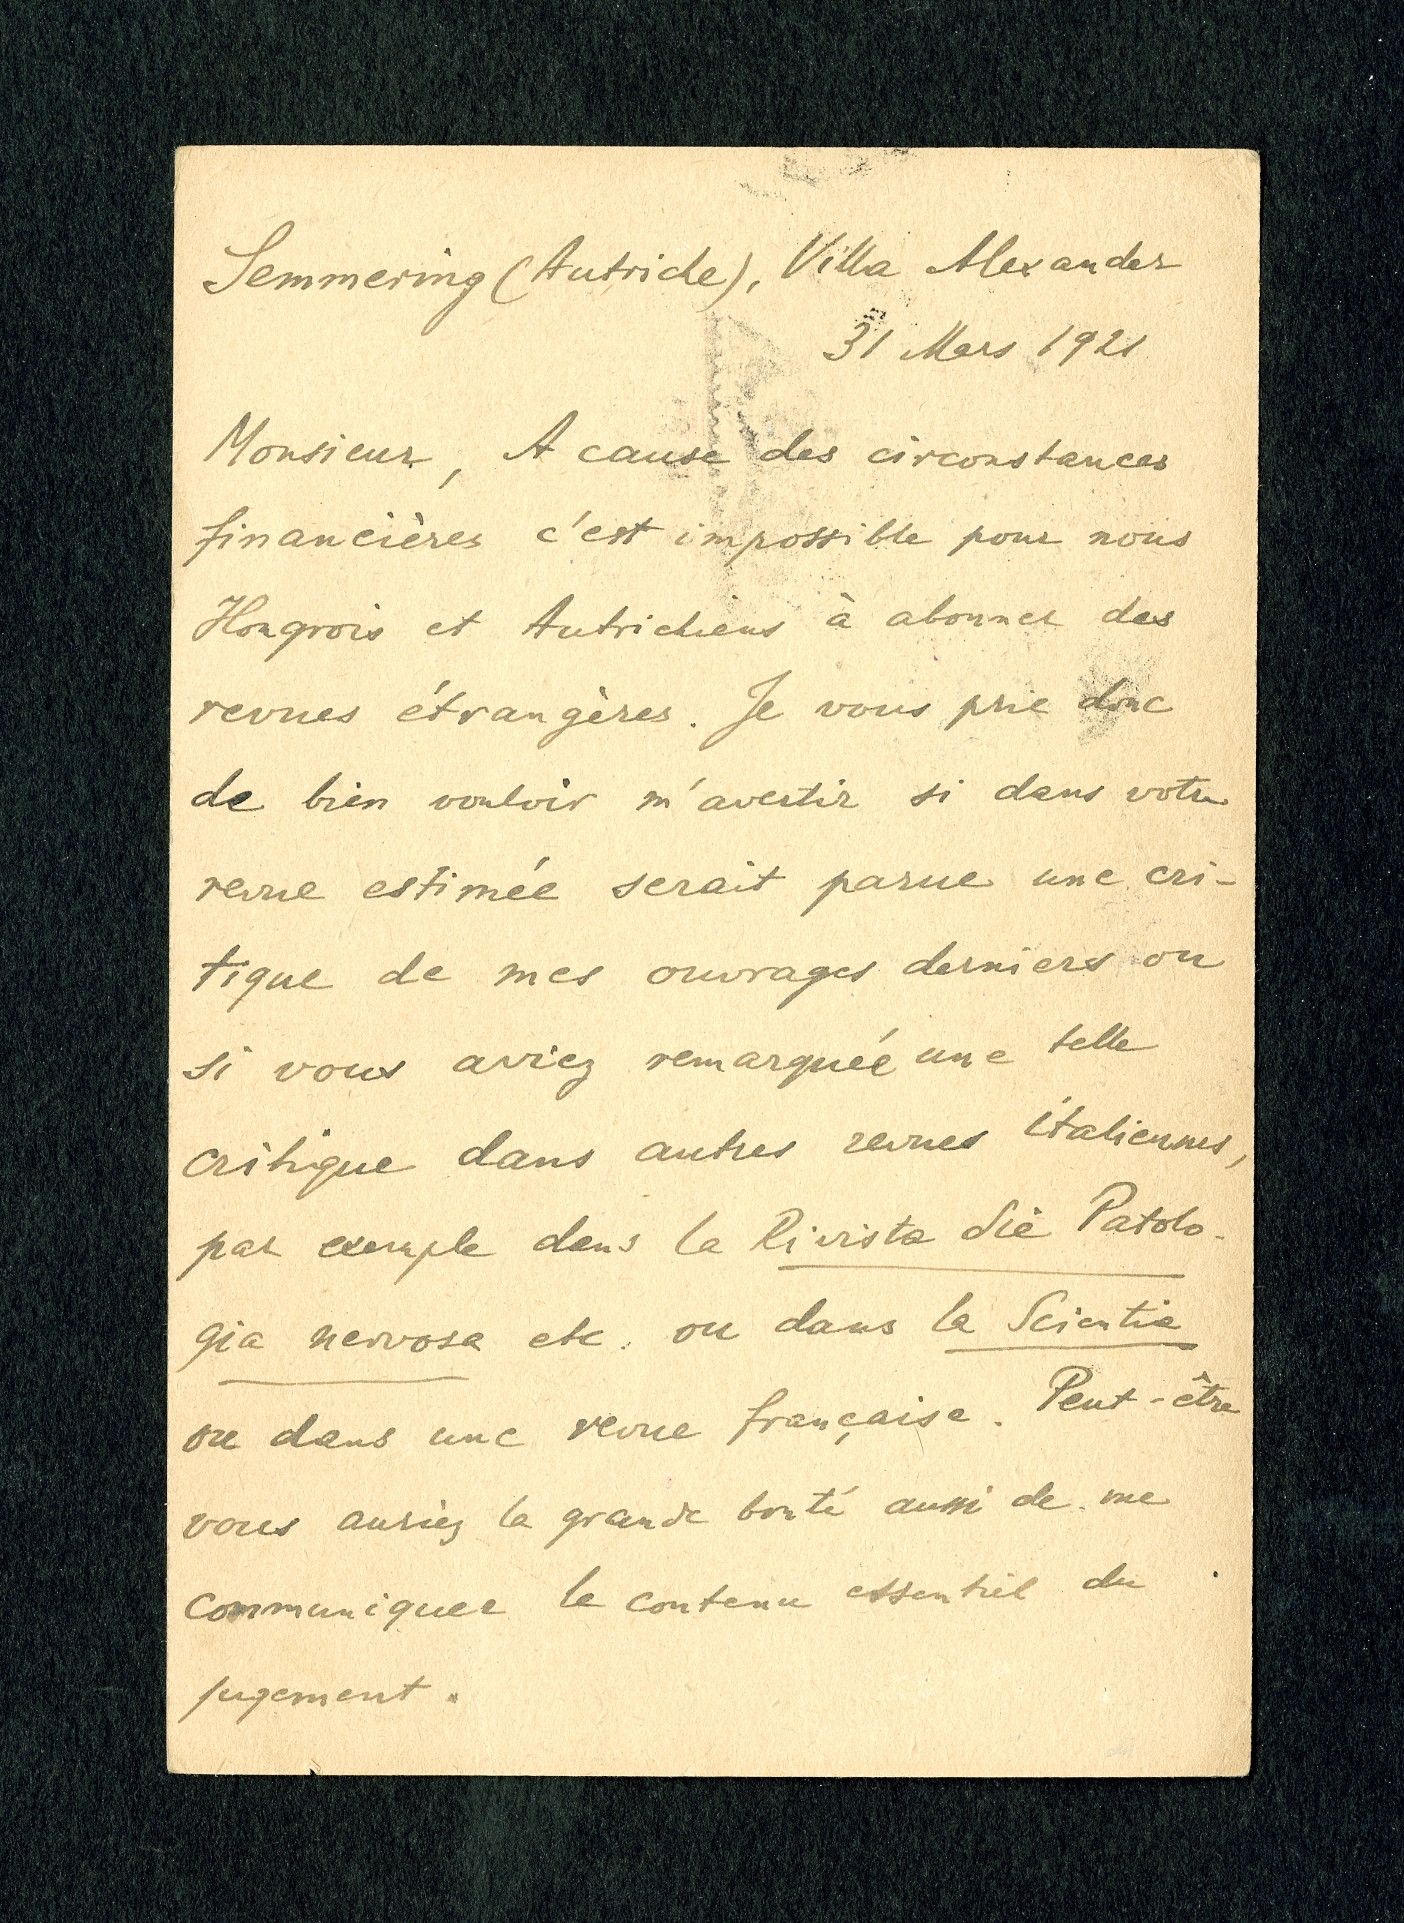 Semmering (Autriche), Villa Alexander
31 Mars 1921
Monsieur, A cause des circonstances
financières c'est impossible pour nous
Hongrois et Autrichiens à abonner des
revues étrangères. Je vous prie donc
de bien vouloir m'avertir si dans votre
revue estimée serait parue une cri-
tique de mes ouvrages derniers ou
si vous aviez remarquée une telle
critique dans autres revues italiennes,
par exemple dans la Rivista die Patolo-
gia nervosa etc. ou dans la Scientia
ou dans une revue française. Peut-être
vous auriez la grande bonté aussi de me
communiquer le contenu essentiel du
jugement.